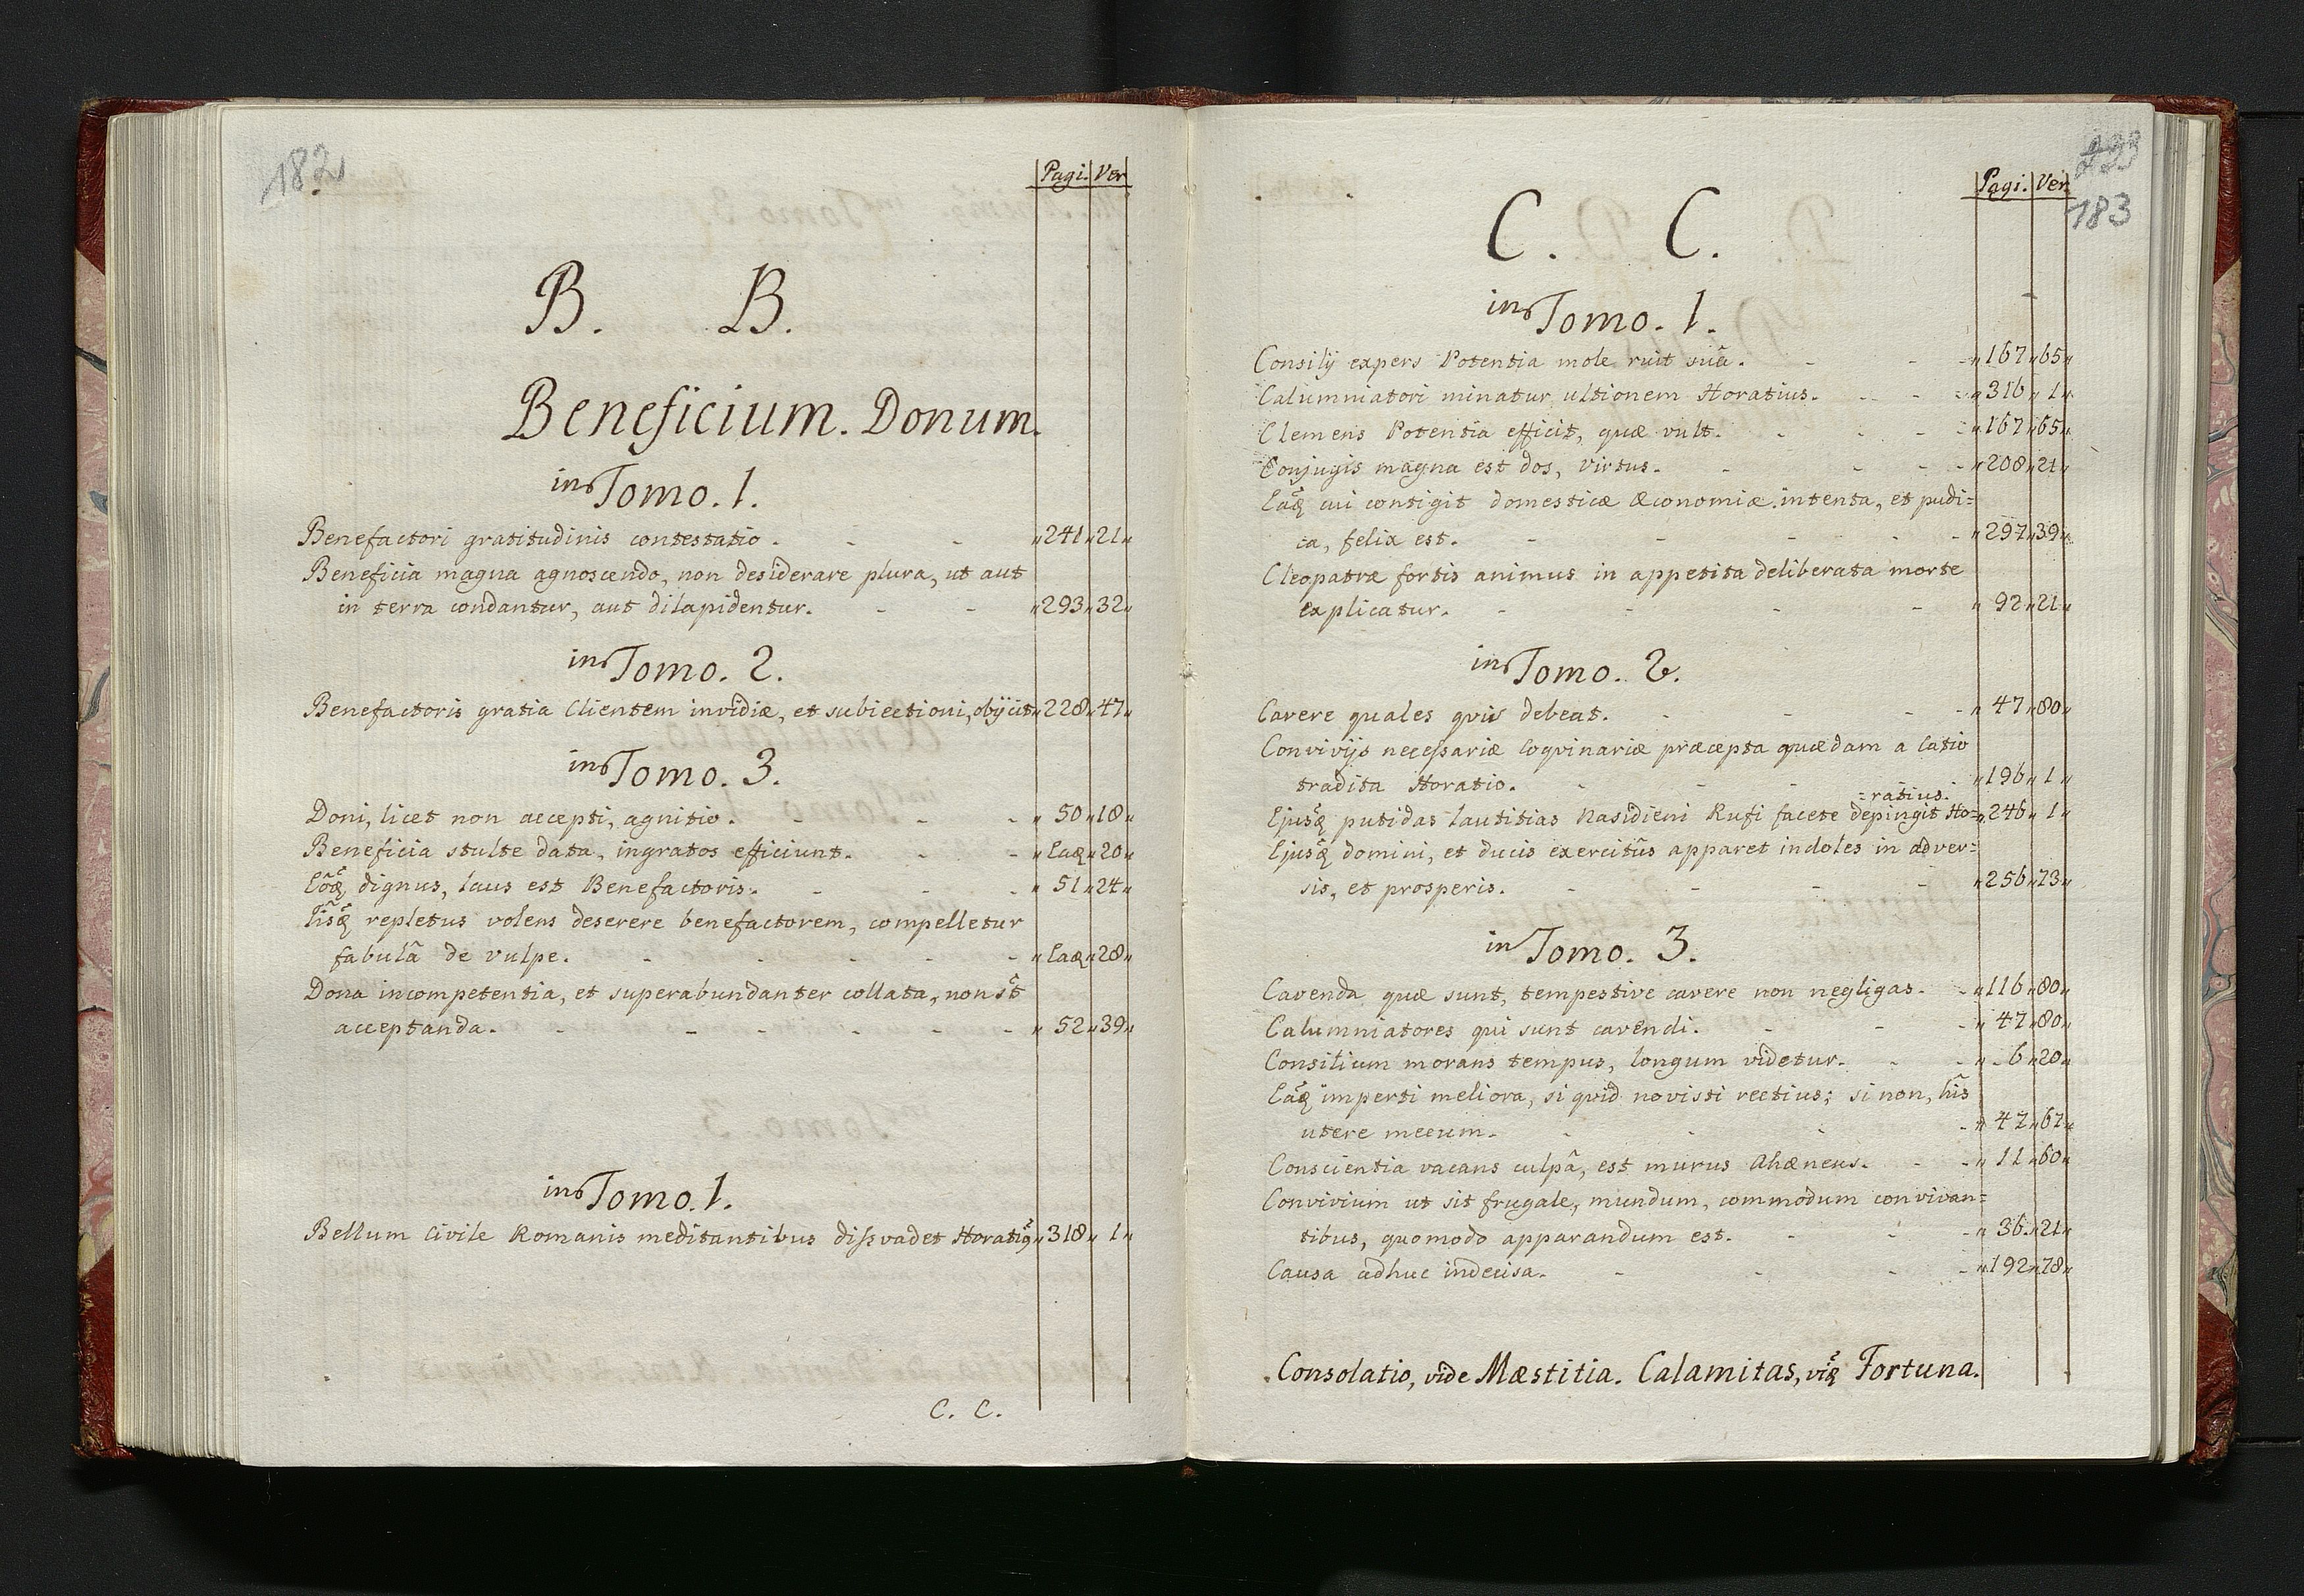 182
Pagi. Ver
B. B.
Beneficium. Donum.
in Tomo. 1.
Benefactori gratitudinis contestatio. - - „241„21„
Beneficia magna agnoscendo, non desiderare plura, ut aut
in terra condantur, aut dilapidentur. - - „293„32„
in Tomo. 2.
Benefactoris gratia Clientem invidiæ, et subiectioni, obijcit „228„47„
in Tomo. 3.
Doni, licet non accepti, agnitio. - - - „50„18„
Beneficia stulte data, ingratos efficiunt. - - „Eaq„20„
dignus, laus est Benefactoris. - - - „51„24„
repletus volens deserere benefactorem, compelletur
fabulâ de vulpe. - - - - - „Eaq„28„
Dona incompetentia, et superabundanter collata, non st̃
acceptanda. - - - - - - „52„39„
in Tomo. 1.
Bellum Civile Romanis meditantibus disvadet Horatiq „318„1„
C. C.
233
Pagi. Ver
183
C. C.
in Tomo. 1.
Consilij expers Potentia mole ruit suâ. - - - „167„65„
Calumniatori minatur ultionem Horatius. - - - „316„1„
Clemens Potentia efficit, quæ vult. - - - - „167„65„
Conjugis magna est dos, virtus. - - - - „208„21„
Eaq cui contigit domesticæ Œconomiæ intenta, et pudi=
ca, felix est. - - - - - „297„39„
Cleopatræ fortis animus in appetita deliberata morte
explicatur. - - - - „92„21„
in Tomo. 2.
Cavere quales quis debeat. - - - - „47„80„
Convivijs necessariæ Coqvinariæ præcepta quædam a Catio
tradita Horatio. - - - „196„1„
=ratius.
Ejusq putidas lautitias Nasidieni Rufi facete depingit Ho= „246„1„
Ejusq domini, et ducis exercitûs apparet indoles in adver=
sis, et prosperis. - - - - „256„73„
in Tomo. 3.
Cavenda quæ sunt, tempestive cavere non negligas. - „116„80„
Calumniatores qui sunt cavendi. - - - „47„80„
Consilium morans tempus, longum videtur. - - „6„20„
Eaq imperti meliora, si qvid novisti rectius; si non, his
utere mecum. - - - - „47„67„
Conscientia vacans culpâ, est murus Ahæneus. - - „11„60„
Convivium ut sit frugale, mundum, commodum convivan=
tibus, quomodo apparandum est. - - - „36„21„
Causa adhuc indecisa. - - - - „192„78„
Consolatio, vide Mæstitia. Calamitas, viq Fortuna.